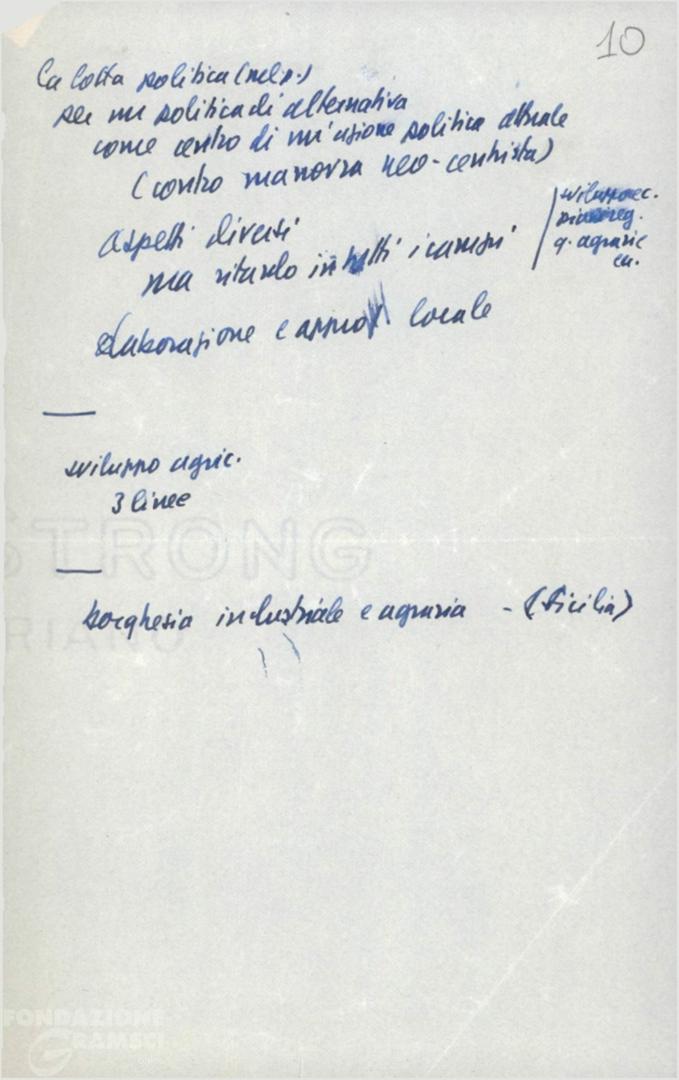 10
la lotta politica (nel p.)
per un politica di alternativa
come centro di un'azione politica attuale
(contro manovra neo-centrista)
aspetti diversi
ma ritardo in tutti i campi
sviluppo ec.
piani reg.
q. agrarie
Elaborazione e locale
sviluppo agric.
3 linee
borghesia industriale e agraria - (Sicilia)
STRONG
RIANO
FONDAZIONE
GRAMSCI